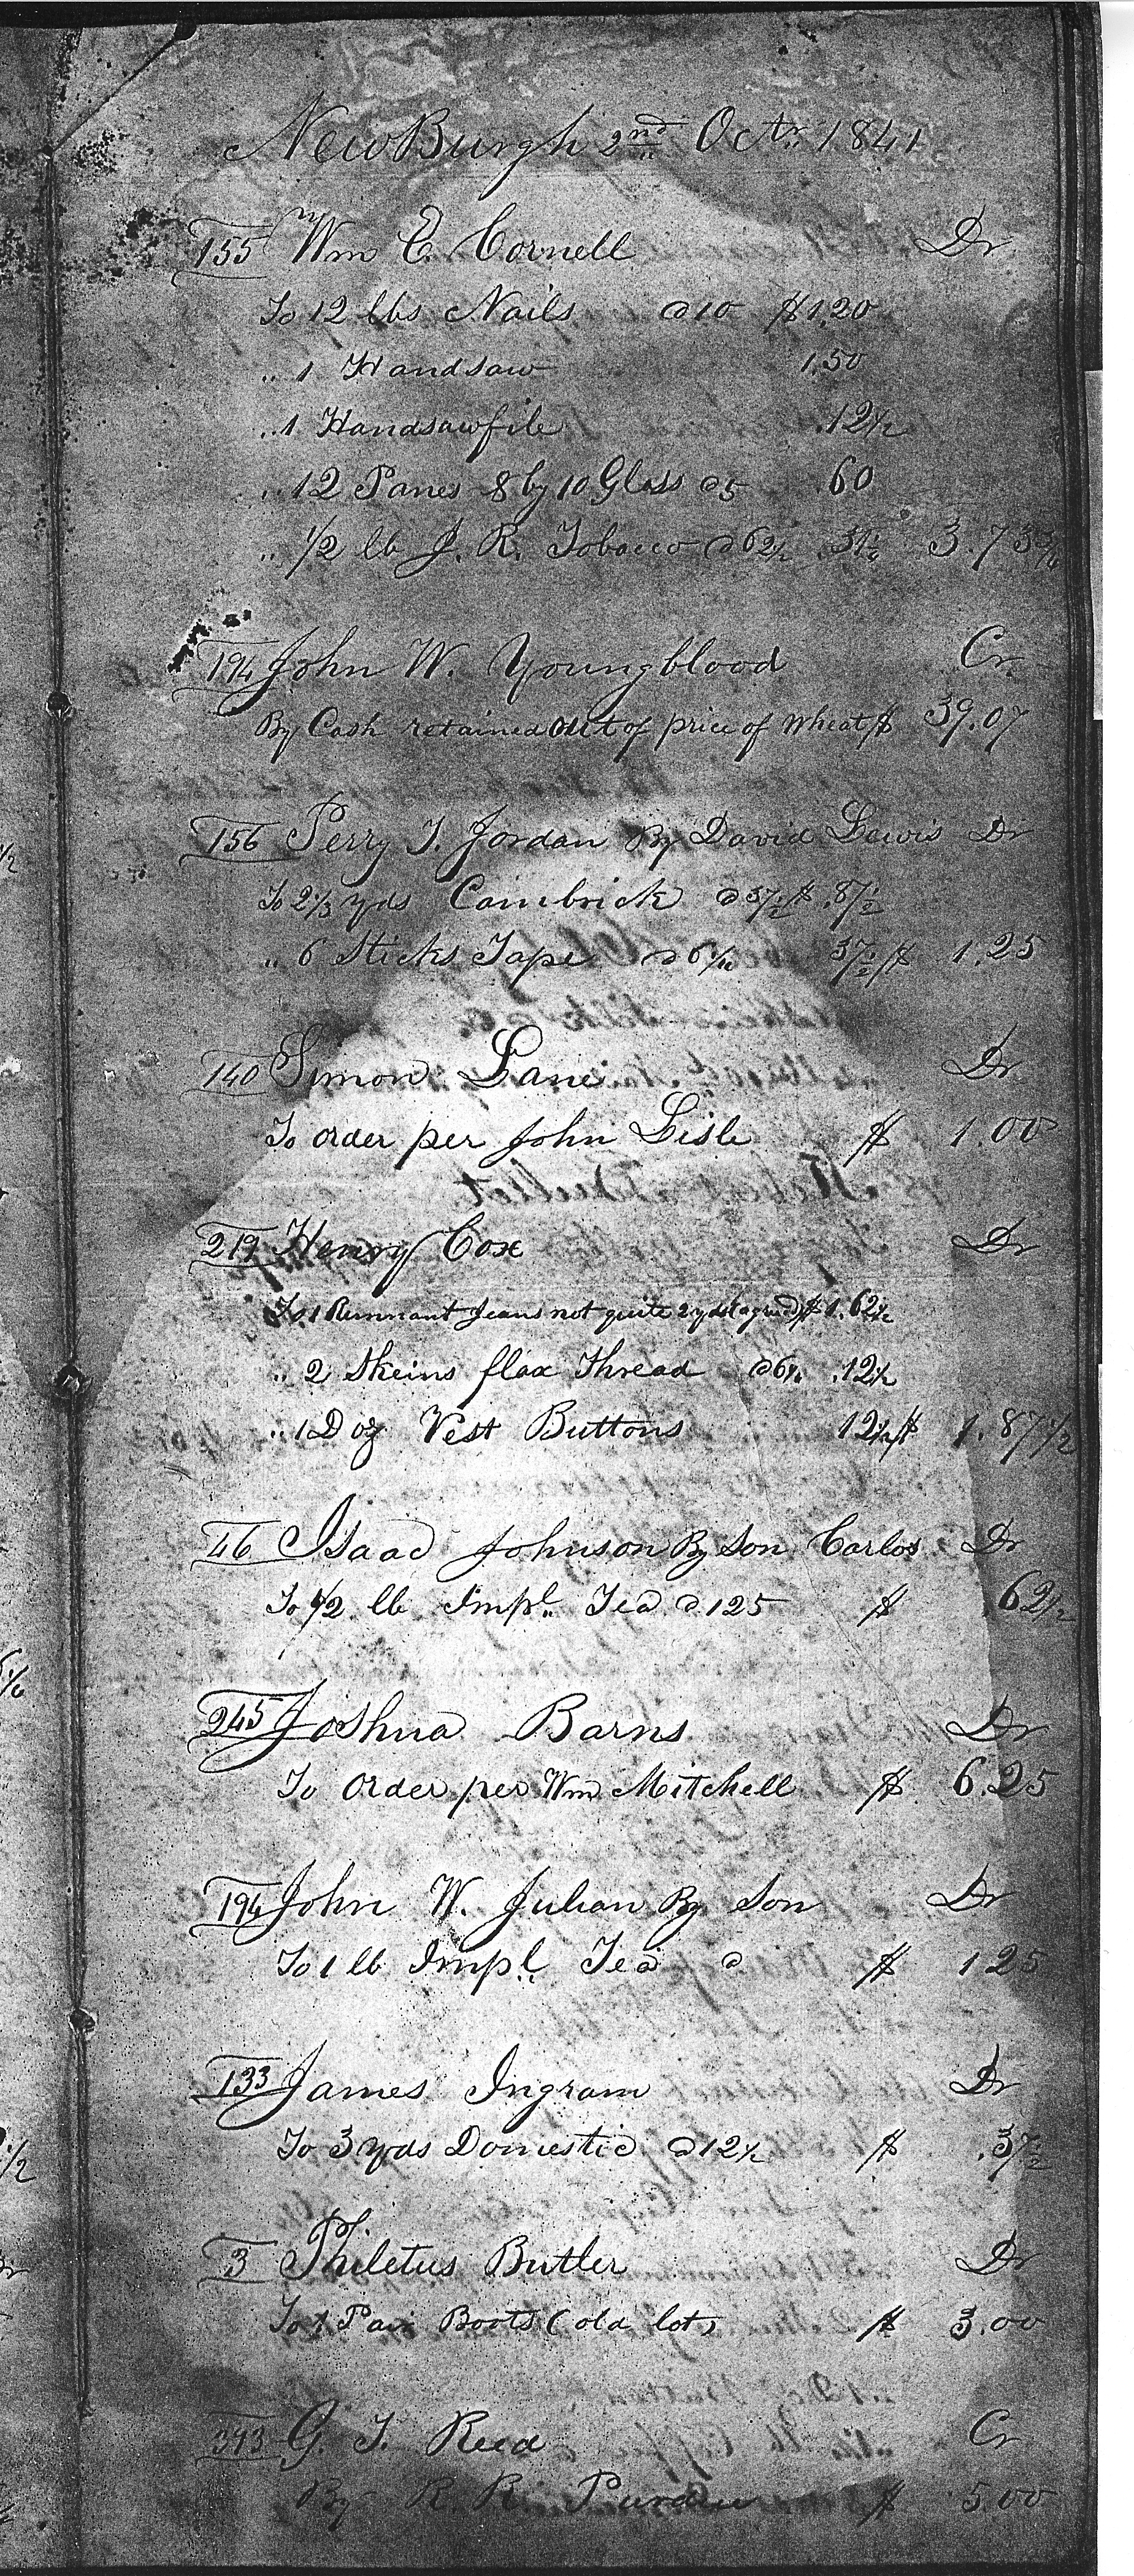 NewBurgh 2nd Octr 1841
155 Wm E. Cornell Dr
To 12 lbs Nails @10 $1.20
" 1 Handsaw 1.50
" 1 Handsawfile .12½
" 12 Panes 8 by 10 Glass @5 .60
" ½ lb J. R. Tobacco @62½ .31¼ 3.73¾
194 John W. Youngblood Cr.
By Cash retained out of price of Wheat $ 39.07
156 Perry T. Jordan By David Lewis Dr
To 2⅓ yds Cambrick @37½ $ .87½
" 6 Sticks Tape @6¼ 37½ $ 1.25
140 Simon Lane Dr
To order per John Lisle $ 1 00
219 Henry Cox Dr
To 1 Remnant Jeans not quite 2 yds (agreed) $ 1.62½
" 2 Skeins flax Thread @6¼ .12½
" 1 Doz Vest Buttons 12½ $ 1.87½
46 Isaac Johnson By Son Carlos Dr
To ½ lb Impl. Tea @125 $ .62½
245 Joshua Barns Dr
To Order per Wm Mitchell $ 6.25
194 John W. Julian By Son Dr
To 1 lb Impl. Tea @ $ 1 25
133 James Ingram Dr
To 3 yds Domestic @12½ $ .37½
3 Philetus Butler Dr
To 1 Pair Boots (old lot) $ 3.00
393 G. T. Reed Cr
By R. R. Purdue $ 5.00